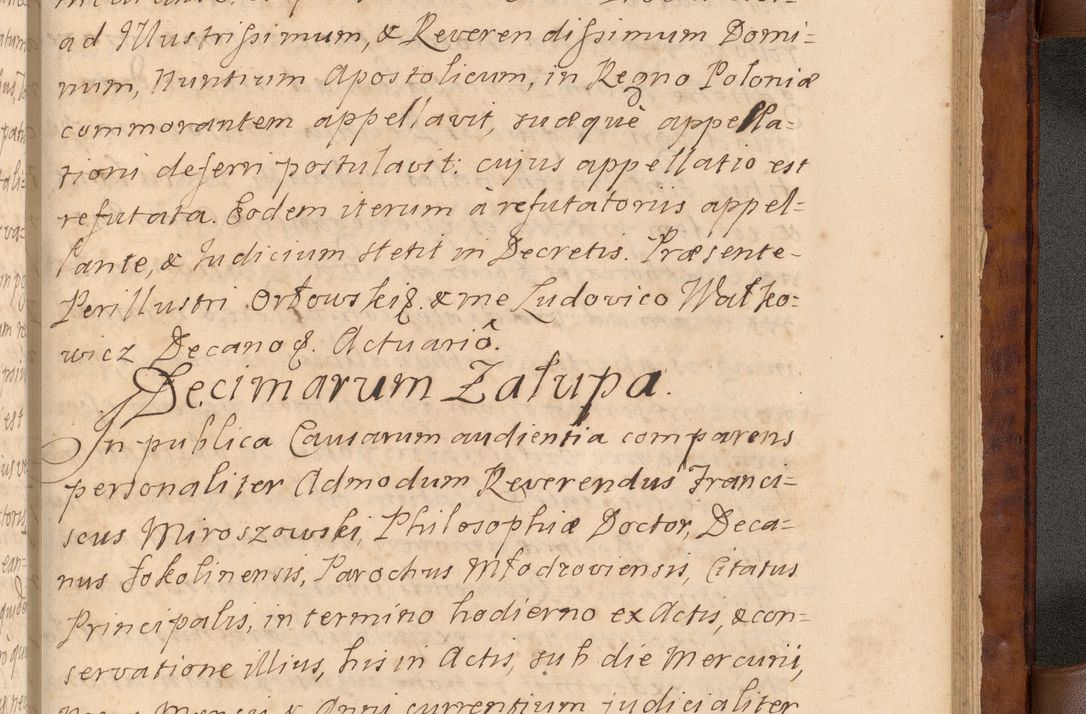 ad Illustrissimum, & Reverendissimum Domi=
num, Nuntium Apostolicum, in Regno Poloniæ
commorantem appellavit, suæquè appella=
tioni deferri postulavit: cujus appellatio est
refutata. Eodem iterum à refutatoriis appel=
lante, & Iudicium stetit in Decretis. Præsente
Perillustri Orłowski & me Ludovico Wałko=
wicz Decano Actuariô.
Decimarum Załupa.
In publica Causarum audientia comparens
personaliter Admodum Reverendus Franci=
scus Miroszowski, Philosophiæ Doctor, Deca=
nus Sokolinensis, Parochus Młodzoviensis, Citatus
Principalis, in termino hodierno ex Actis, & con=
servatione illius, his in Actis, sub die Mercurii,
Mensis & Anni currentium judicialiter